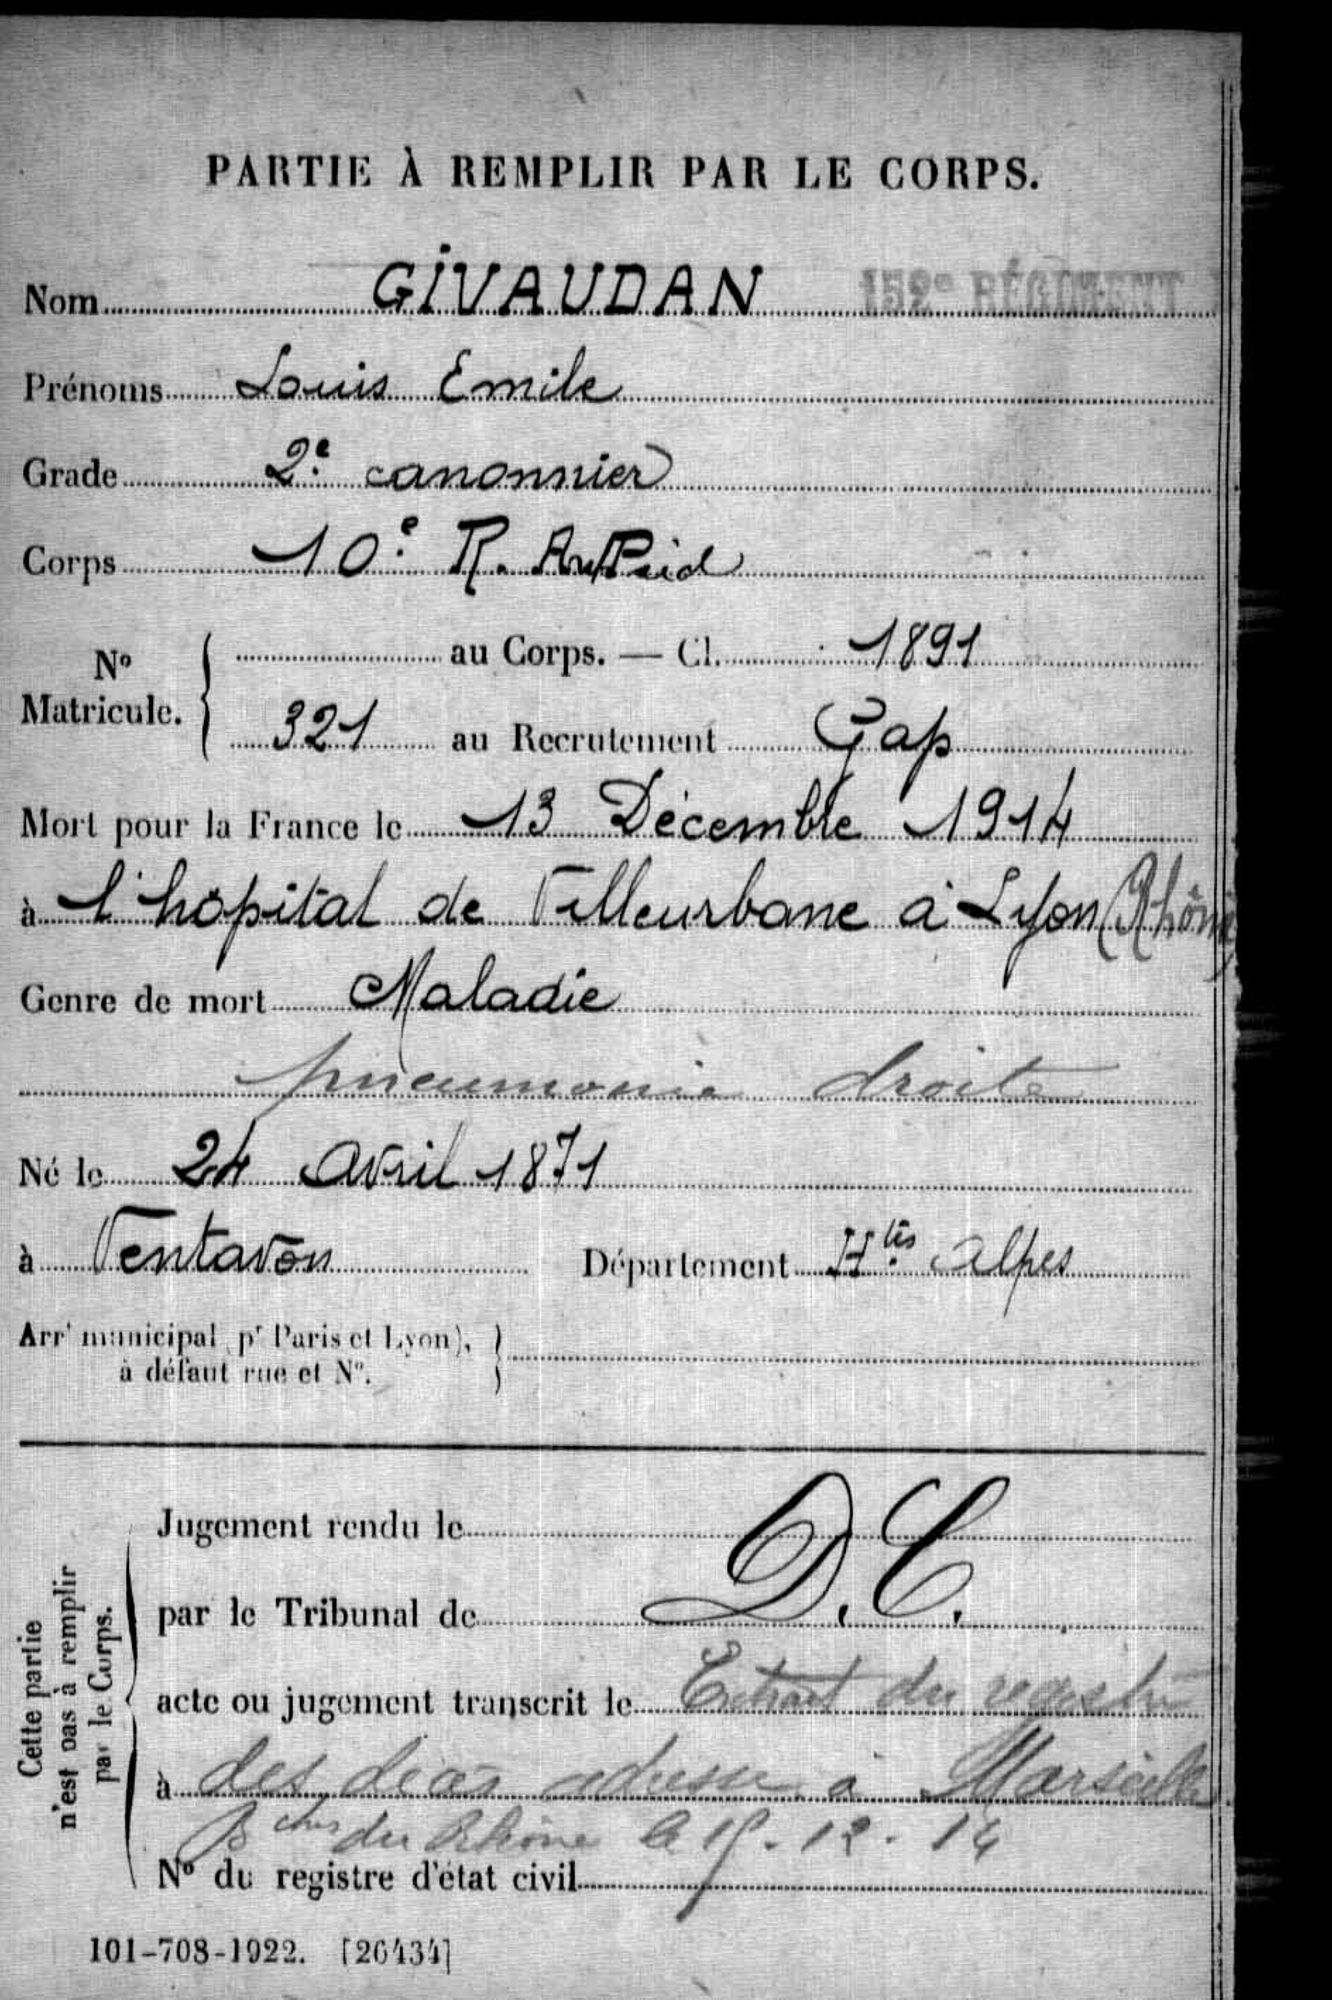 PARTIE À REMPLIR PAR LE CORPS.
Nom GIVAUDAN 152e RÉGIMENT
Prénoms Louis Emile
Grade 2e canonnier
Corps 10e R. Art Pied
No Matricule. au Corps. — Cl. 1891
321 au Recrutement Gap
Mort pour la France le 13 Décembre 1914
à l'hôpital de Villeurbane à Lyon (Rhône)
Genre de mort Maladie
pneumonie droite
Né le 24 Avril 1871
à Ventavon Département Htes Alpes
Arrt municipal (pr Paris et Lyon),
à défaut rue et No.
Cette partie n'est pas à remplir par le Corps.
Jugement rendu le
par le Tribunal de D.C.
acte ou jugement transcrit le Extrait du registre
à des décès adressé à Marseille
Bches du Rhône le 15-12-14
No du registre d'état civil
101-708-1922. [26434]